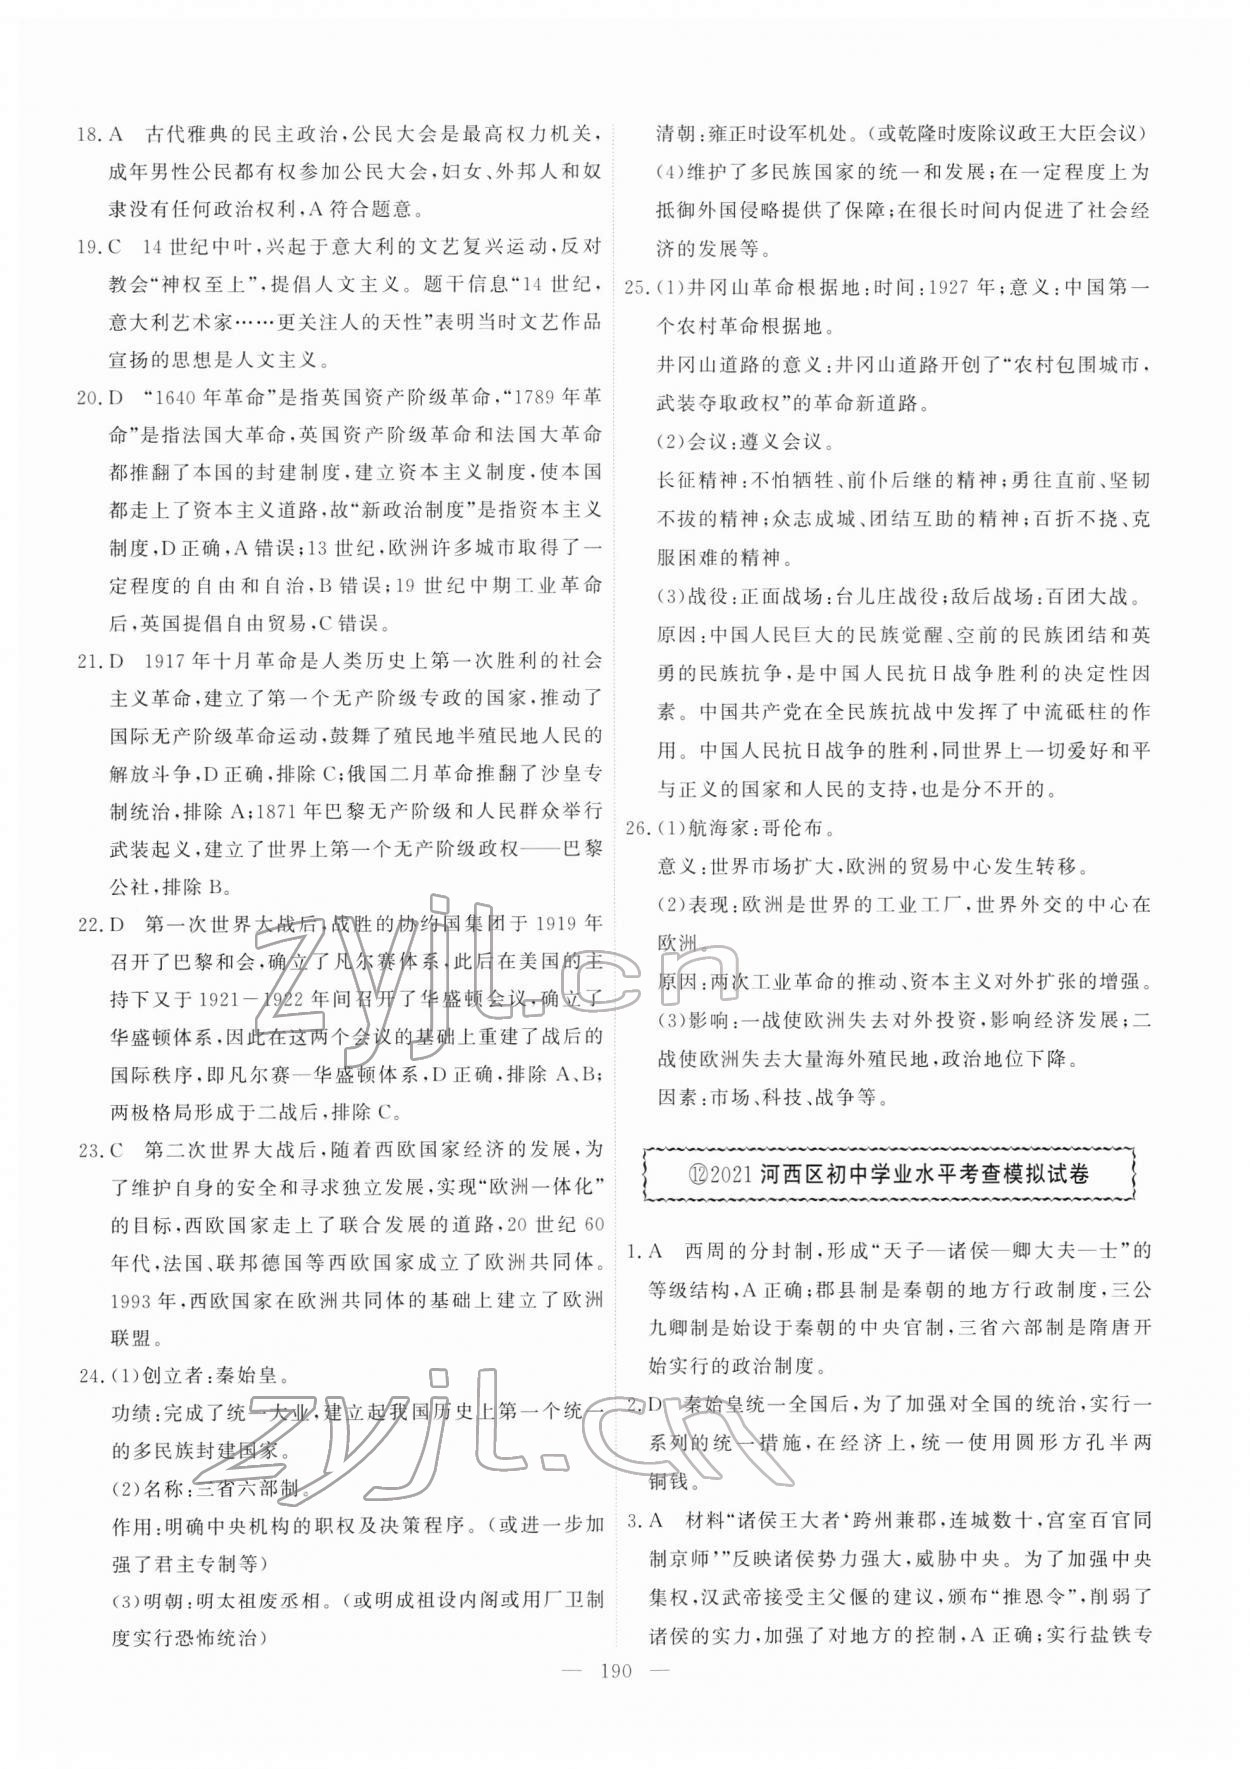 18. A　古代雅典的民主政治,公民大会是最高权力机关,
成年男性公民都有权参加公民大会,妇女、外邦人和奴
隶没有任何政治权利,A符合题意。
19. C　14世纪中叶,兴起于意大利的文艺复兴运动,反对
教会“神权至上”,提倡人文主义。题干信息“14世纪,
意大利艺术家……更关注人的天性”表明当时文艺作品
宣扬的思想是人文主义。
20. D　“1640年革命”是指英国资产阶级革命,“1789年革
命”是指法国大革命,英国资产阶级革命和法国大革命
都推翻了本国的封建制度,建立资本主义制度,使本国
都走上了资本主义道路,故“新政治制度”是指资本主义
制度,D正确,A错误;13世纪,欧洲许多城市取得了一
定程度的自由和自治,B错误;19世纪中期工业革命
后,英国提倡自由贸易,C错误。
21. D　1917年十月革命是人类历史上第一次胜利的社会
主义革命,建立了第一个无产阶级专政的国家,推动了
国际无产阶级革命运动,鼓舞了殖民地半殖民地人民的
解放斗争,D正确,排除C;俄国二月革命推翻了沙皇专
制统治,排除A;1871年巴黎无产阶级和人民群众举行
武装起义,建立了世界上第一个无产阶级政权——巴黎
公社,排除B。
22. D　第一次世界大战后,战胜的协约国集团于1919年
召开了巴黎和会,确立了凡尔赛体系,此后在美国的主
持下又于1921－1922年间召开了华盛顿会议,确立了
华盛顿体系,因此在这两个会议的基础上重建了战后的
国际秩序,即凡尔赛—华盛顿体系,D正确,排除A、B;
两极格局形成于二战后,排除C。
23. C　第二次世界大战后,随着西欧国家经济的发展,为
了维护自身的安全和寻求独立发展,实现“欧洲一体化”
的目标,西欧国家走上了联合发展的道路,20世纪60
年代,法国、联邦德国等西欧国家成立了欧洲共同体。
1993年,西欧国家在欧洲共同体的基础上建立了欧洲
联盟。
24. (1)创立者:秦始皇。
功绩:完成了统一大业,建立起我国历史上第一个统一
的多民族封建国家。
(2)名称:三省六部制。
作用:明确中央机构的职权及决策程序。(或进一步加
强了君主专制等)
(3)明朝:明太祖废丞相。(或明成祖设内阁或用厂卫制
度实行恐怖统治)
清朝:雍正时设军机处。(或乾隆时废除议政王大臣会议)
(4)维护了多民族国家的统一和发展;在一定程度上为
抵御外国侵略提供了保障;在很长时间内促进了社会经
济的发展等。
25. (1)井冈山革命根据地:时间:1927年;意义:中国第一
个农村革命根据地。
井冈山道路的意义:井冈山道路开创了“农村包围城市,
武装夺取政权”的革命新道路。
(2)会议:遵义会议。
长征精神:不怕牺牲、前仆后继的精神;勇往直前、坚韧
不拔的精神;众志成城、团结互助的精神;百折不挠、克
服困难的精神。
(3)战役:正面战场:台儿庄战役;敌后战场:百团大战。
原因:中国人民巨大的民族觉醒、空前的民族团结和英
勇的民族抗争,是中国人民抗日战争胜利的决定性因
素。中国共产党在全民族抗战中发挥了中流砥柱的作
用。中国人民抗日战争的胜利,同世界上一切爱好和平
与正义的国家和人民的支持,也是分不开的。
26. (1)航海家:哥伦布。
意义:世界市场扩大,欧洲的贸易中心发生转移。
(2)表现:欧洲是世界的工业工厂,世界外交的中心在
欧洲。
原因:两次工业革命的推动、资本主义对外扩张的增强。
(3)影响:一战使欧洲失去对外投资,影响经济发展;二
战使欧洲失去大量海外殖民地,政治地位下降。
因素:市场、科技、战争等。
⑫2021河西区初中学业水平考查模拟试卷
1. A　西周的分封制,形成“天子—诸侯—卿大夫—士”的
等级结构,A正确;郡县制是秦朝的地方行政制度,三公
九卿制是始设于秦朝的中央官制,三省六部制是隋唐开
始实行的政治制度。
2. D　秦始皇统一全国后,为了加强对全国的统治,实行一
系列的统一措施,在经济上,统一使用圆形方孔半两
铜钱。
3. A　材料“诸侯王大者‘跨州兼郡,连城数十,宫室百官同
制京师’”反映诸侯势力强大,威胁中央。为了加强中央
集权,汉武帝接受主父偃的建议,颁布“推恩令”,削弱了
诸侯的实力,加强了对地方的控制,A正确;实行盐铁专
— 190 —
zyjl.cn
zyjl.cn